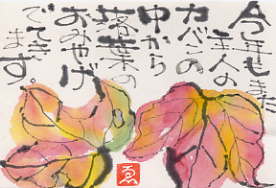 今年もまた
主人の
カバンの
中から
落葉の
おみやげ
でてきます。
ゑ